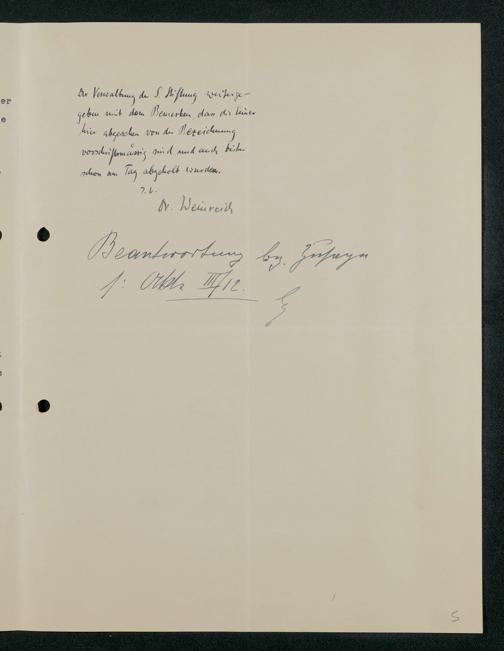 er
e
Der Verwaltung der S. Stiftung weiterge-
geben mit dem Bemerken, dass die Eimer
hier abgesehen von der Bezeichnung
vorschriftsmässig sind und auch
schon am Tag abgeholt wurden.
Dr. Weinreich
Beantwortung
s: Akt III/12.
5